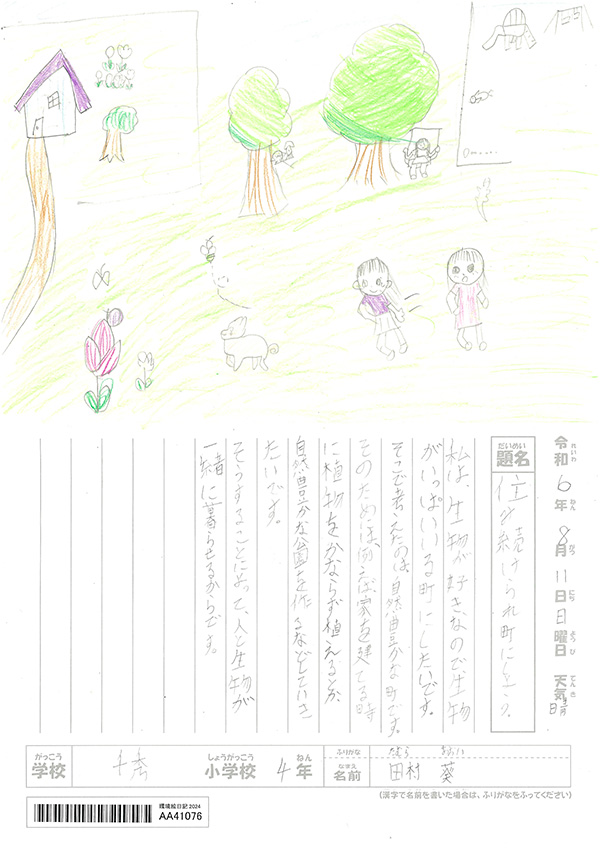 令和6年8月11日日曜日 天気 晴
れいわ ねん がつ にち ようび てんき
だいめい
題名 住み続けられ町にしよう。
私は、生物が好きなので生物
がいっぱいいる町にしたいです。
そこで考えたのは、自然豊かな町です。
そのためには、例えば家を建てる時
に植物をかならず植えるとか、
自然豊かな公園を作るなどしていき
たいです。
そうすることによって、人と生物が
一緒に暮らせるからです。
がっこう しょうがっこう ねん ふりがな たむら あおい
学校 小学校 4年 なまえ 名前 田村 葵
(漢字で名前を書いた場合は、ふりがなをふってください)
環境絵日記2024
AA41076